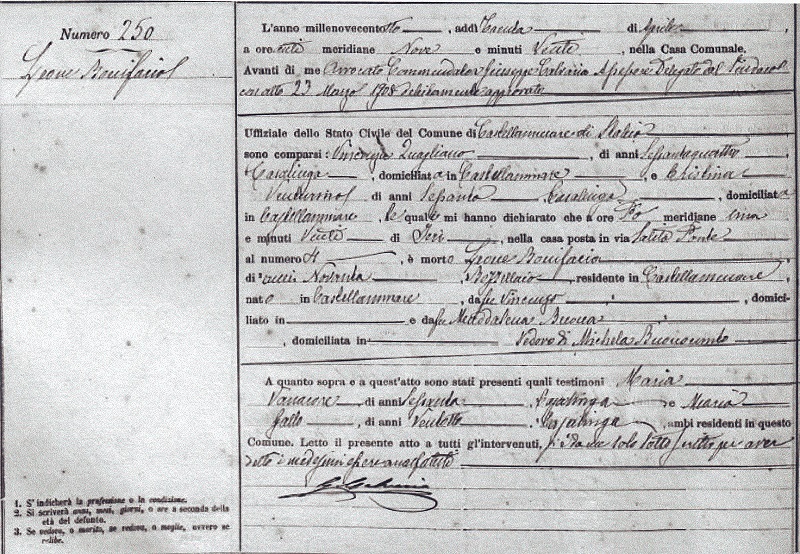 Numero 250
Leone Bonifacio
L'anno millenovecentotto, addì Trenta di Aprile,
a ore anti meridiane Nove e minuti Venti, nella Casa Comunale,
Avanti di me Avvocato Commendator Giuseppe Assessore Delegato dal Sindaco
con atto 23 Marzo 1908 debitamente approvato
Uffiziale dello Stato Civile del Comune di Castellammare di Stabia
sono comparsi: Vincenza Quagliano, di anni Sessantaquattro
Casalinga, domiciliata in Castellammare, e Cristina
di anni Sessanta Casalinga, domiciliata
in Castellammare, le quali mi hanno dichiarato che a ore Po meridiane una
e minuti Venti di Ieri, nella casa posta in via Salita Ponte
al numero 4, è morto Leone Bonifacio
di anni Novanta, residente in Castellammare
nato in Castellammare, da fu Vincenzo, domici-
liato in e da fu Maddalena
, domiciliata in Vedovo di Michela
A quanto sopra e a quest'atto sono stati presenti quali testimoni Maria
Vanacore di anni Sessanta Casalinga e Maria
Gallo, di anni Ventotto, Casalinga, ambi residenti in questo
Comune. Letto il presente atto a tutti gl'intervenuti, si è da me solo sottoscritto per aver
detto i medesimi essere analfabeti
1. S'indicherà la professione o la condizione.
2. Si scriverà anni, mesi, giorni, o ore a seconda della
età del defunto.
3. Se vedovo, o marito, se vedova, o moglie, ovvero se
celibe.